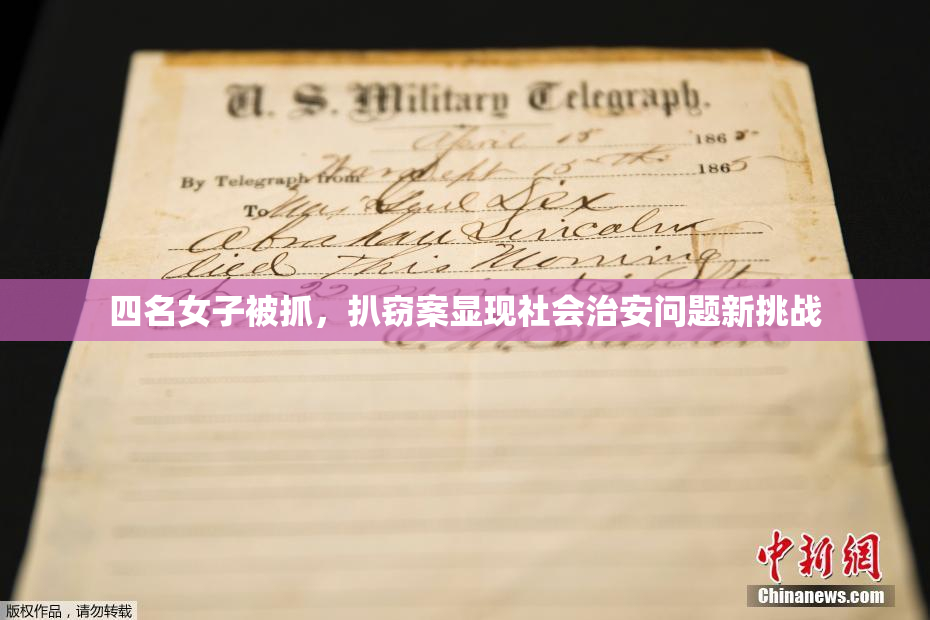 U. S. Military Telegraph.
April 15 1865.
By Telegraph from War Dept 15th 1865
To Maj Genl Dix
Abraham Lincoln
died This Morning
22 minutes after
四名女子被抓，扒窃案显现社会治安问题新挑战
E. M. Stanton
中新网
Chinanews.com
版权作品，请勿转载